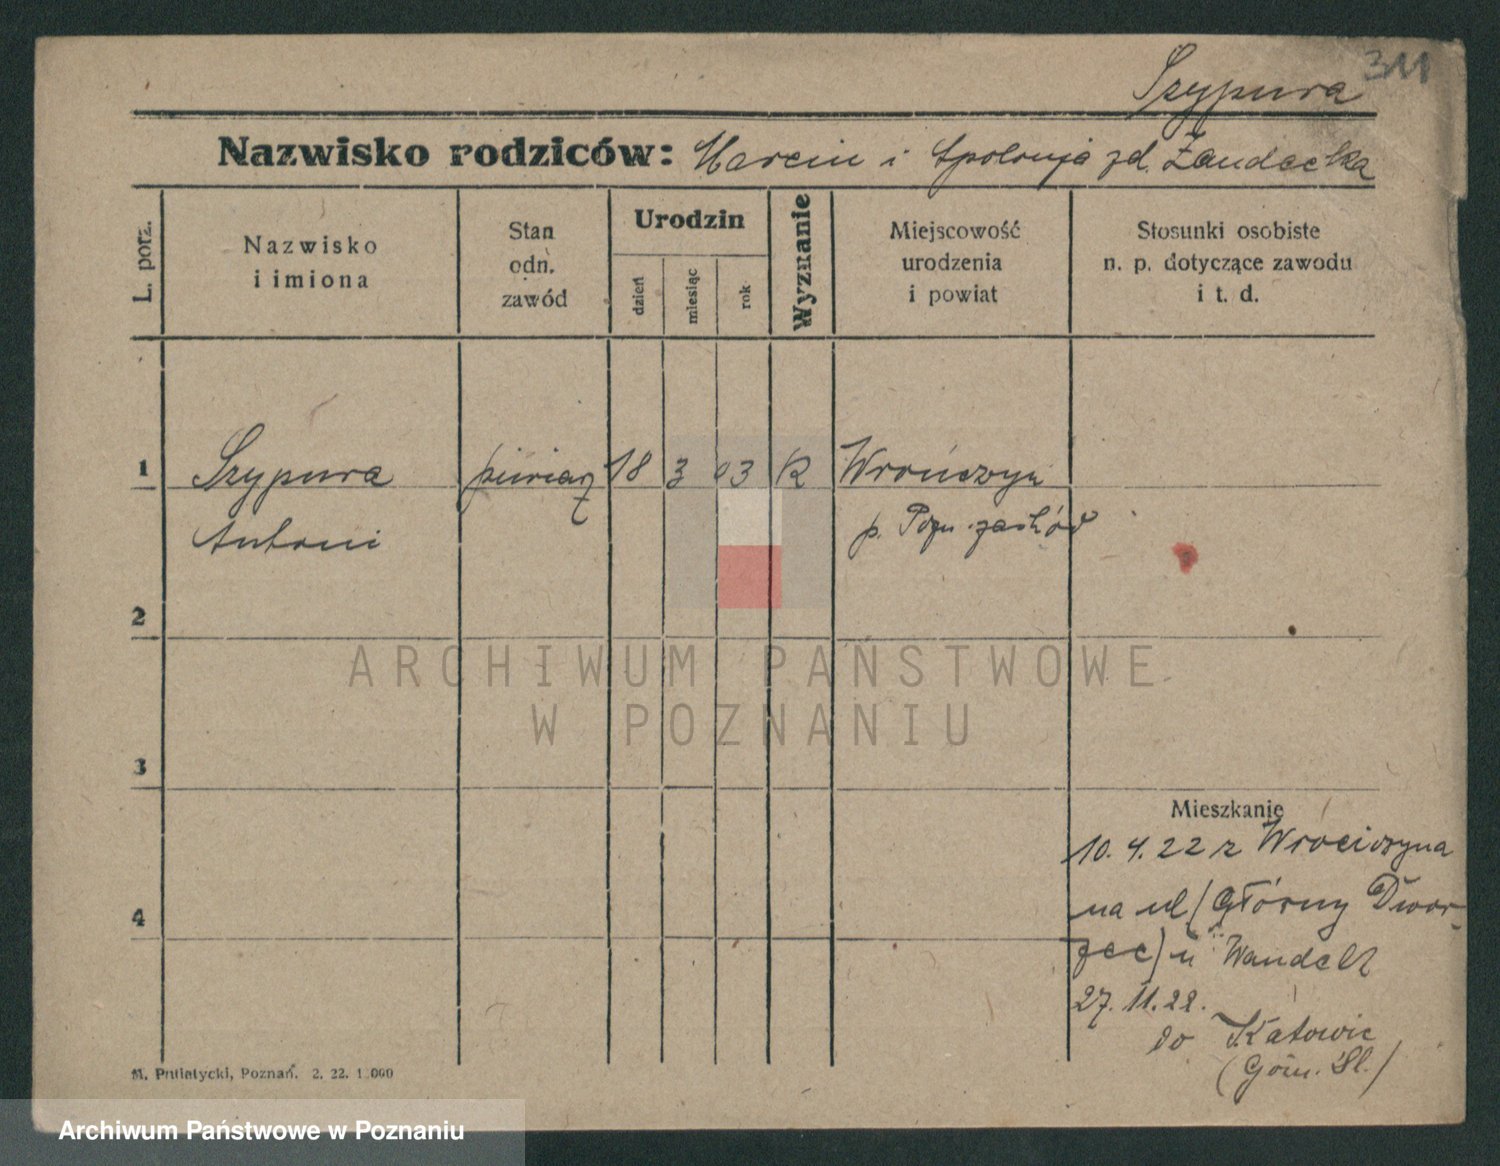 311
Szypura
Nazwisko rodziców: Marcin i Apolonja zd. Żandecka
L. porz.
Nazwisko
i imiona
Stan
odn.
zawód
Urodzin
dzień
miesiąc
rok
Wyznanie
Miejscowość
urodzenia
i powiat
Stosunki osobiste
n. p. dotyczące zawodu
i t. d.
1
Szypura
18 3 03 R Wrończyn
Antoni
p. Pozn. zachód
2
ARCHIWUM PAŃSTWOWE
W POZNANIU
3
Mieszkanie
10. 4. 22 z
na ul (Główny Dwor-
4
zec) u Wandelt
27. 11. 22.
do Katowic
(Górn. Śl.)
M. Putiatycki, Poznań. 2. 22. 1 000
Archiwum Państwowe w Poznaniu